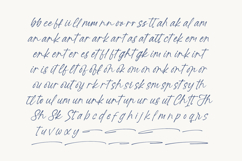 bb ee ff ii ll mm nn oo rr ss tt ah ak al am
an ank ant ar ark art as at att ck ek em en
enk ent er es et ff ft ght gk im in ink int
ir is it lf lt of off oh ok om on onk ont op or
ou our out oy rk rt sh si sk sm sp st sy th
tl to ul um un unk unt up ur us ut Ch ft Th
Sh Sk St a b c d e f g h i j k l m n o p q r s
t u v w x y